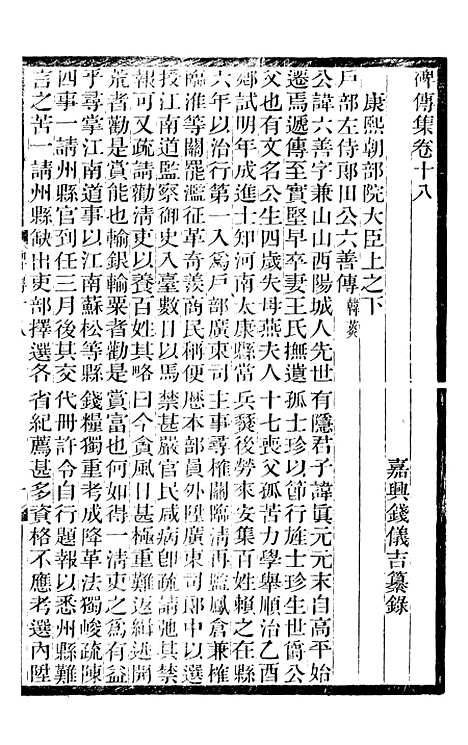 碑傳集卷十八
嘉興錢儀吉纂錄
康熙朝部院大臣上之下
戶部左侍郎田公六善傳 韓菼
公諱六善字兼山山西陽城人先世有隱君子諱眞元元末自高平始
遷焉遞傳至實堅早卒妻王氏撫遺孤士珍以節行旌士珍生世爵公
父也有文名公生四歲失母燕夫人十七喪父孤苦力學舉順治乙酉
鄉試明年成進士知河南太康縣當兵燹後勞來安集百姓賴之在縣
六年以治行第一入爲戶部廣東司主事尋榷關臨淸再監鳳倉榷
臨淮等關罷濫征革奇羨商民稱便歴本部員外陞廣東司郎中以選
授江南道監察御史入臺數日以馬禁甚嚴官民咸病卽疏請弛其禁
報可又疏請勸淸吏以養百姓其略曰今貪風日甚極重難返緝逃開
荒者勸是賞能也輸銀輸粟者勸是賞富也何如得一淸吏之爲有益
乎尋掌江南道事以江南蘇松等縣錢糧獨重考成降革法獨峻疏陳
四事一請州縣官到任三月後其交代冊許令自行題報以悉州縣難
言之苦一請州縣缺出吏部擇選各省紀薦甚多資格不應考選內陞